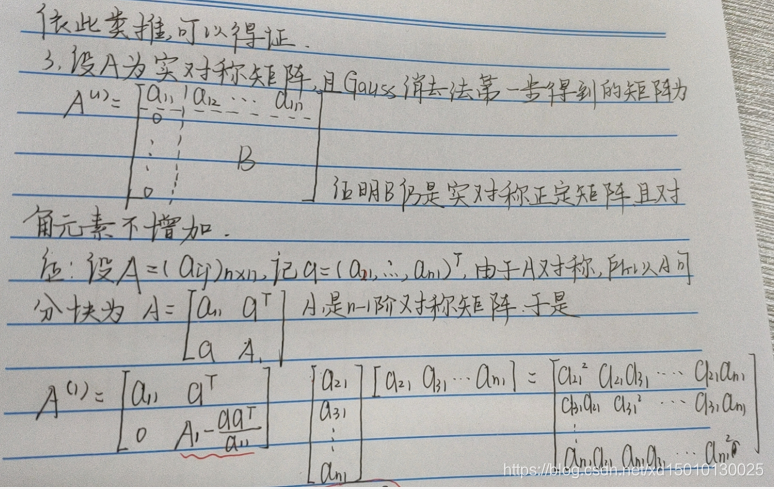 依此类推,可以得证.
3.设A为实对称矩阵,且Gauss消去法第一步得到的矩阵为
A⁽¹⁾= [a₁₁ a₁₂ … a₁n
0
⋮ B
0] 证明B仍是实对称正定矩阵且对
角元素不增加.
证:设A=(aij)n×n,记a=(a₂₁,…,an₁)ᵀ,由于A对称,所以A可
分块为 A=[a₁₁ aᵀ A₁是n-1阶对称矩阵.于是
a A₁]
A⁽¹⁾=[a₁₁ aᵀ [a₂₁ [a₂₁ a₃₁ … an₁] = [a₂₁² a₂₁a₃₁ … a₂₁an₁
0 A₁-aaᵀ/a₁₁] a₃₁ a₃₁a₂₁ a₃₁² … a₃₁an₁
⋮ ⋮
an₁] an₁a₂₁ an₁a₃₁ … an₁²]
https://blog.csdn.net/xd15010130025